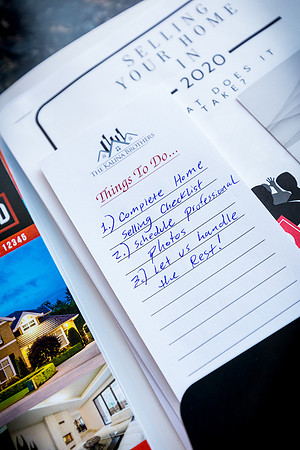 SELLING
YOUR HOME
IN
2020
AT DOES IT
TAKE?
THE KALINA BROTHERS
Things To Do...
1.) Complete Home
Selling Checklist
2.) Schedule Professional
Photos
3.) Let us handle
the Rest!
D
12345